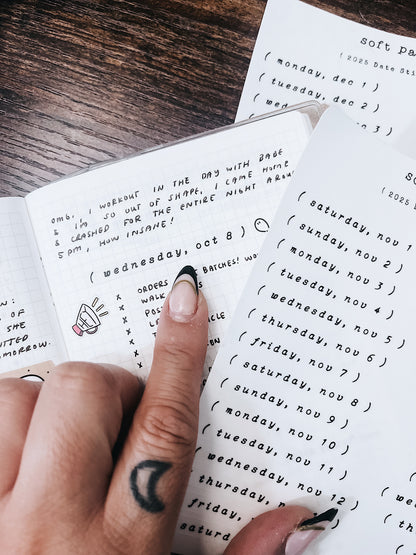 soft pa
( 2025 Date Sti
( monday, dec 1 )
( tuesday, dec 2 )
( wednes
3 )
OMG, I WORKOUT IN THE DAY WITH BABE
& I'M SO OUT OF SHAPE, I CAME HOME
& CRASHED FOR THE ENTIRE NIGHT AROUND
5PM, HOW INSANE!
( wednesday, oct 8 )
ORDERS BATCHES! WO
WALK
POS
L
RCLE
ON
N:
OF
SHE
ITTED
MORROW.
so
( 2025
( saturday, nov 1
( sunday, nov 2 )
( monday, nov 3 )
( tuesday, nov 4 )
( wednesday, nov 5 )
( thursday, nov 6 )
( friday, nov 7 )
( saturday, nov 8 )
( sunday, nov 9 )
( monday, nov 10 )
( tuesday, nov 11 )
( wednesday, nov 12 )
( thursday, nov
( friday,
( saturd
( we
( t
(